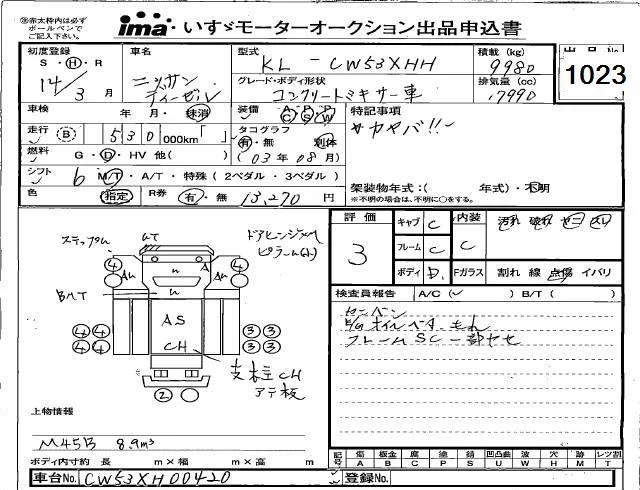 ㊟赤太枠内は必ず
ボールペンで
ご記入下さい。
ima いすゞモーターオークション出品申込書
初度登録 S・H・R 14/3月
車名 ニッサン ディーゼル
型式 KL-CW53XHH
積載(kg) 9980
出品No. 1023
グレード・ボディ形状 コンクリートミキサー車
排気量(cc) 17990
車検 年 月・抹消
装備 A C P S P W
特記事項
サカヤバ!!
走行 B 530000km「 」
タコグラフ 有・無 別体
燃料 G・D・HV 他( )
(03年08月)
シフト 6 M/T・A/T・特殊(2ペダル・3ペダル)
架装物年式:( 年式)・不明
※不明の場合は、不明に○をする。
色 指定 R券 有・無 13,270円
評価 3
キャブ C 内装 C 汚れ 破れ
フレーム C
ボディ D. Fガラス 割れ 線 点傷 イバリ
ステップM
UT
ドアヒンジM
ピラーM(小)
④ ④ AU AU
BMT
AS
CH
④④ ④④ ③③ ③③
支柱CH
アテ板
②
検査員報告 A/C(✓) B/T( )
E/Gオイルベタ モれ
フレームSC 一部ヤセ
上物情報
M45B 8.9m³
ボディ内寸約 長 m×幅 m×高 m
記号 傷A 板金B 腐C 塗P 錆S 凹凸曲U 波W 穴H 跡M レツ割T
車台No. CW53XH00420
登録No.